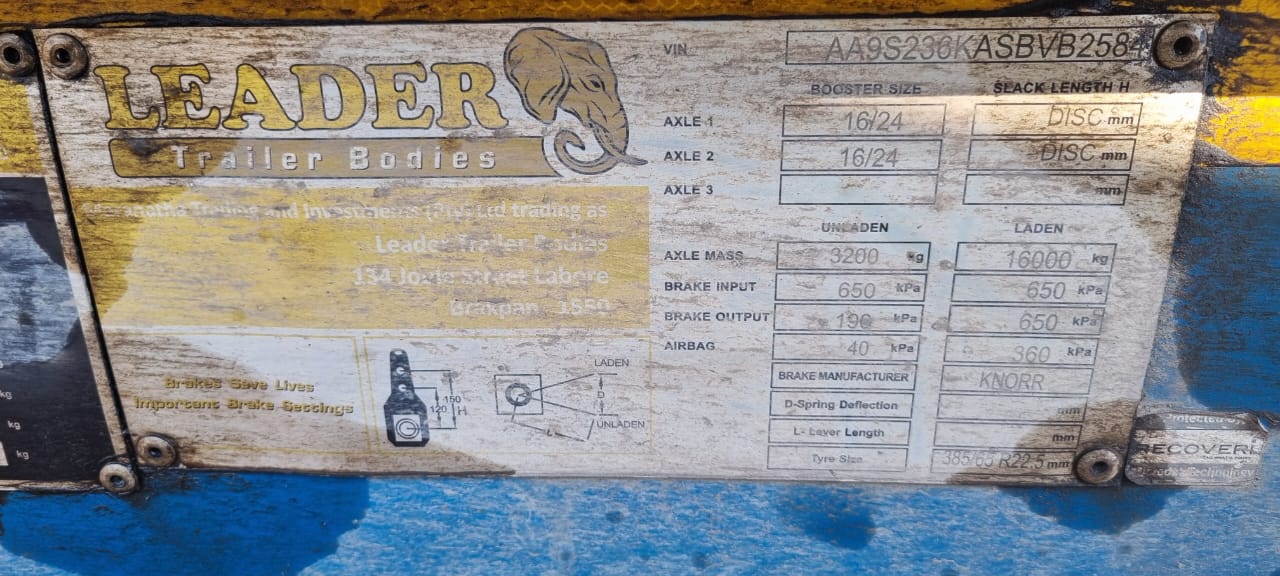 LEADER
Trailer Bodies
Trading and Investments (Pty) Ltd trading as
Leader Trailer Bodies
134 Joule Street Labore
Brakpan 1550
Brakes Save Lives
Important Brake Settings
150
120
H
LADEN
D
UNLADEN
L
VIN AA9S236KASBVB2584
BOOSTER SIZE SLACK LENGTH H
AXLE 1 16/24 DISC mm
AXLE 2 16/24 DISC mm
AXLE 3 mm
UNLADEN LADEN
AXLE MASS 3200 kg 16000 kg
BRAKE INPUT 650 kPa 650 kPa
BRAKE OUTPUT 190 kPa 650 kPa
AIRBAG 40 kPa 360 kPa
BRAKE MANUFACTURER KNORR
D-Spring Deflection mm
L- Lever Length mm
Tyre Size 385/65 R22.5 mm
Protected by
RECOVERI
Technology
kg
kg
kg